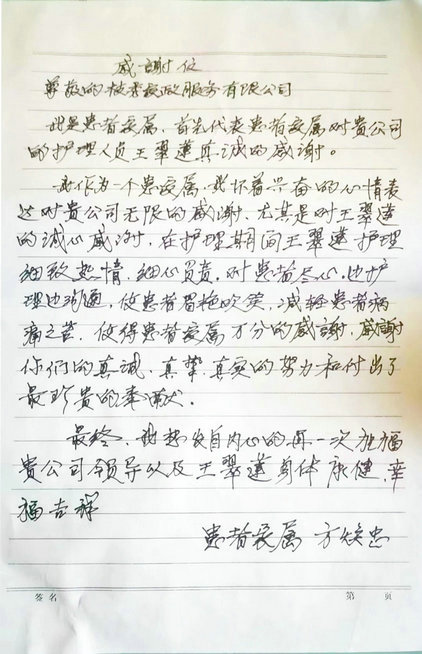 感謝信
尊敬的 家政服务有限公司
我是患者家属，首先代表患者家属对贵公司
的护理人员王翠莲真诚的感谢。
我作为一个患家属，我怀着兴奋的心情表
达对贵公司无限的感谢，尤其是对王翠莲
的诚心感谢，在护理期间王翠莲护理
细致热情，细心负责，对患者尽心，也护
理也沟通，使患者眉艳欢笑，减轻患者病
痛之苦，使得患者家属万分的感謝，感謝
你们的真诚，真挚，真实的努力和付出了
最珍贵的奉献。
最终，我想发自内心的再一次祝福
贵公司领导以及王翠莲身体康健，幸
福吉祥
患者家属 方 忠
签名 第 页